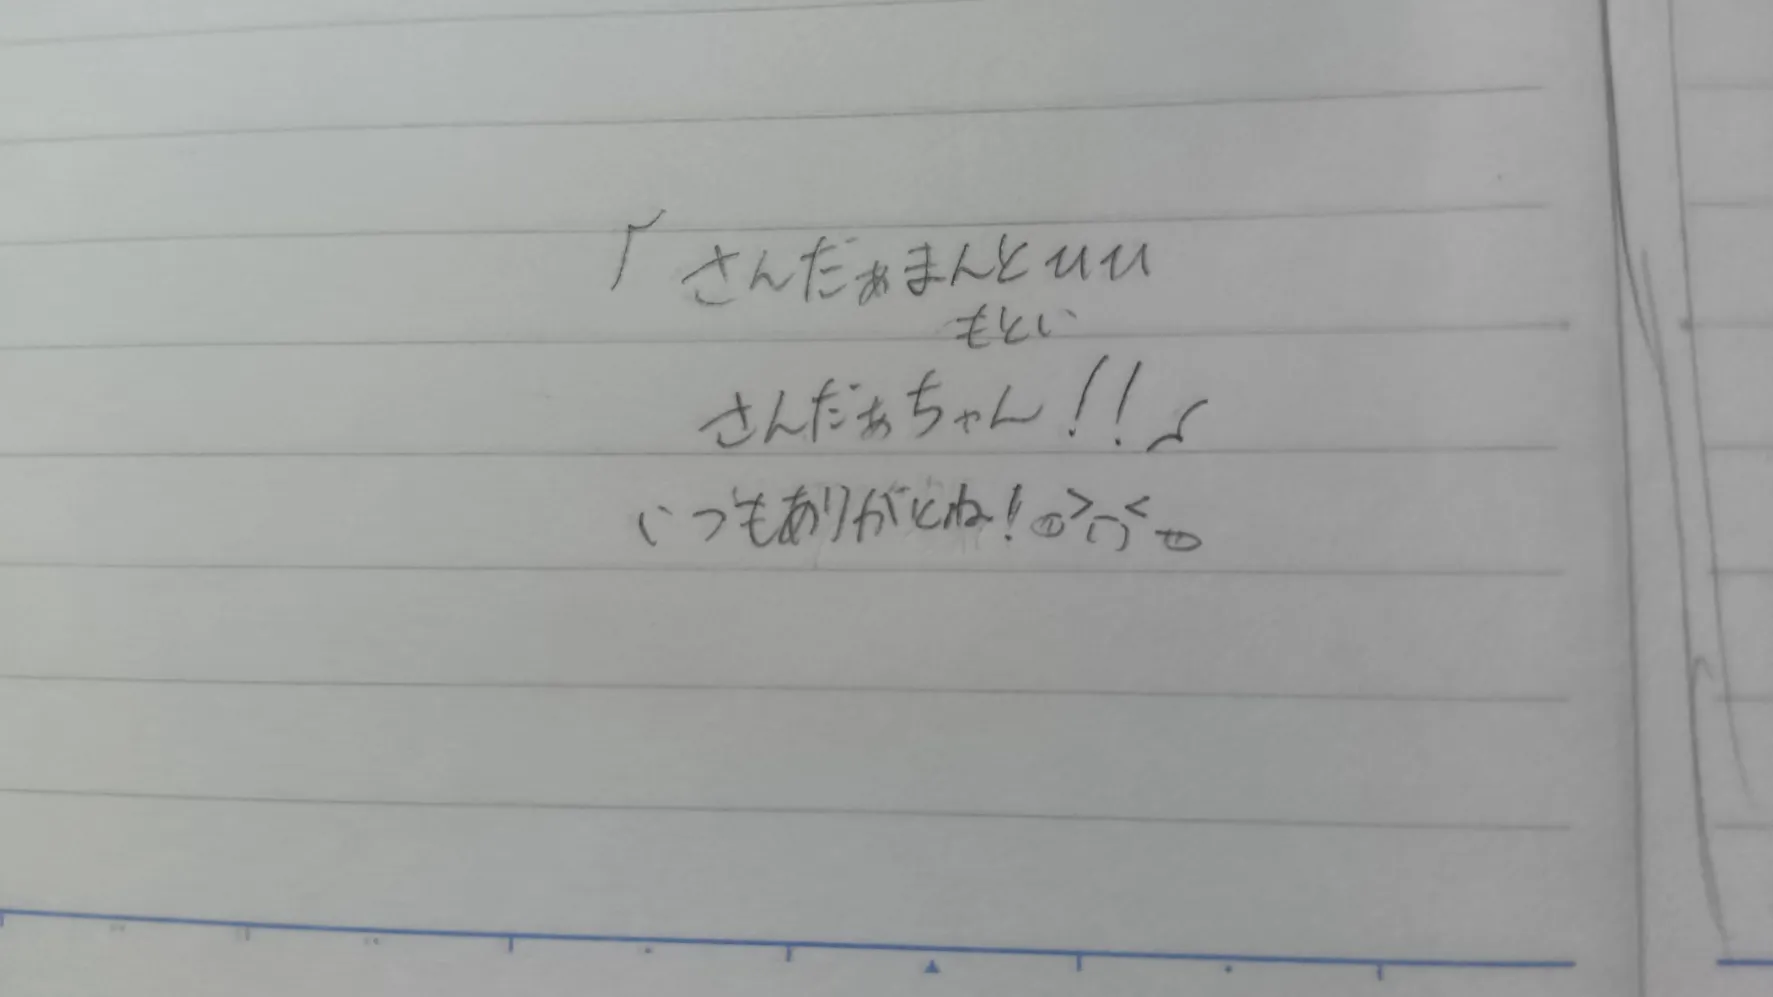 「さんだぁまんとυυ
もとい
さんだぁちゃん!!」
いつもありがとね!